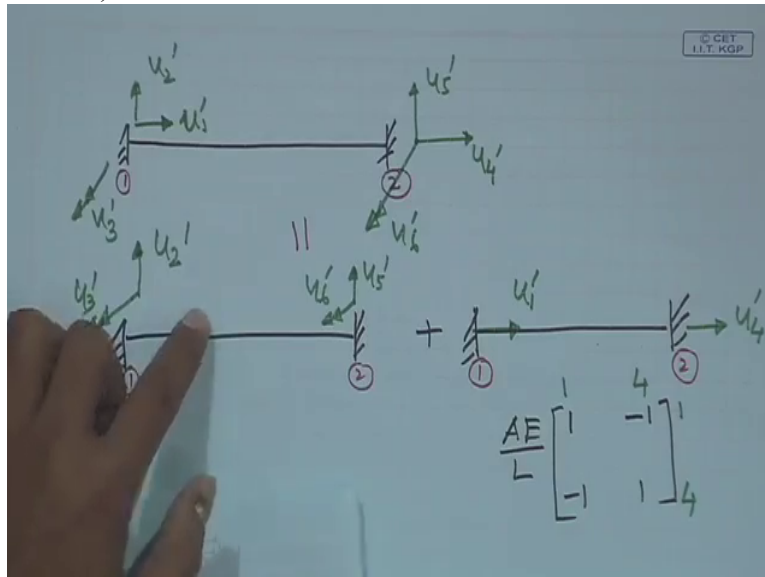 © CET
I.I.T. KGP
u2'
u1'
u5'
u4'
1
2
u3'
u6'
=
u2'
u3'
u6'
u5'
+
u1'
u4'
1
2
1
2
1 4
AE/L [1 -1] 1
[-1 1] 4